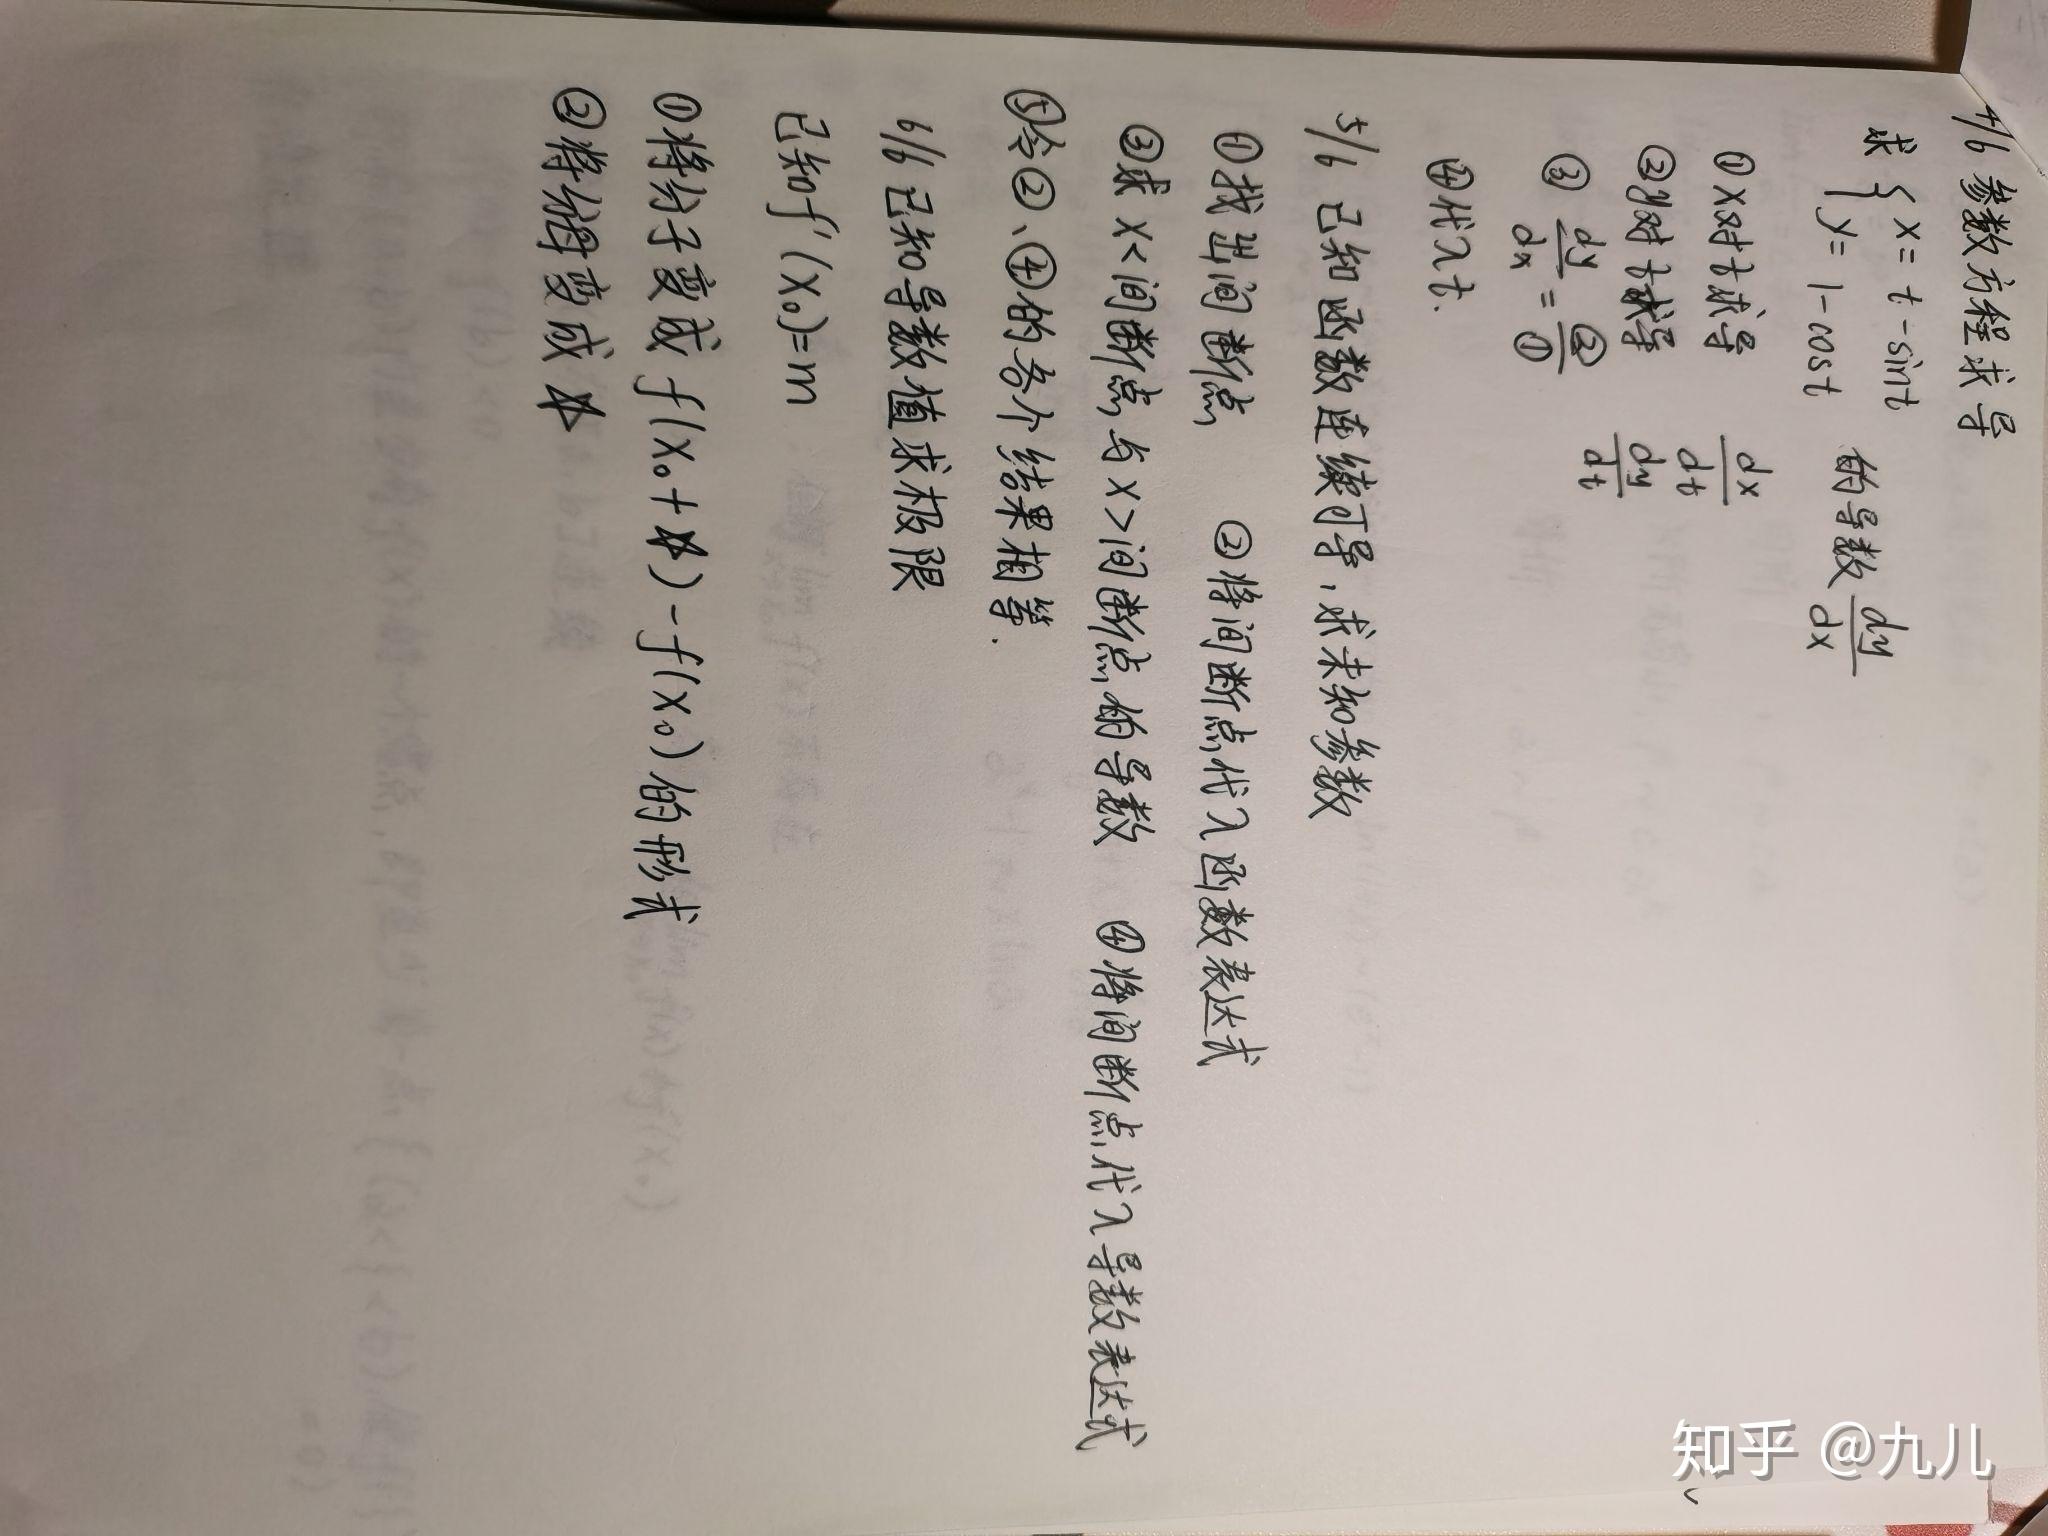 4/6 参数方程求导
求 { x = t - sint
y = 1 - cost 的导数 dy/dx
①x对t求导 dx/dt
②y对t求导 dy/dt
③ dy/dx = ②/①
④代入t.
5/6 已知函数连续可导,求未知参数
①找出间断点 ②将间断点代入函数表达式
③求x<间断点与x>间断点的导数 ④将间断点代入导数表达式
⑤令②、④的各个结果相等.
6/6 已知导数值求极限
已知f'(x₀)=m
①将分子变成 f(x₀+☆)-f(x₀)的形式
②将分母变成☆
知乎 @九儿